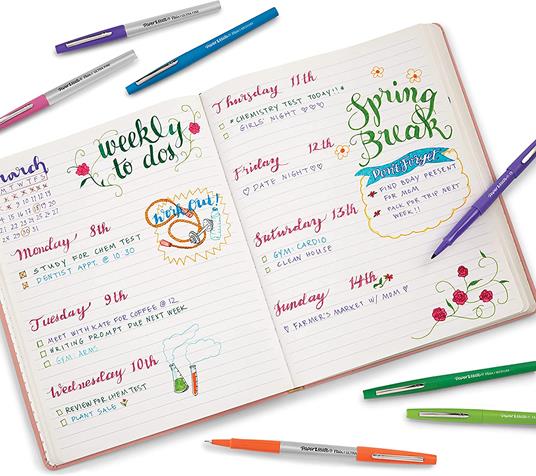 Paper Mate Flair ULTRA FINE
Paper Mate Flair ULTRA FINE
Paper Mate Flair MEDIUM
March
M T W T F S
weekly
to dos
Monday 8th
STUDY FOR CHEM TEST
DENTIST APPT. @ 10:30
Work Out!
Tuesday 9th
MEET WITH KATE FOR COFFEE @ 12
WRITING PROMPT DUE NEXT WEEK
GYM: ARMS
Wednesday 10th
REVIEW FOR CHEM TEST
PLANT SALE
Thursday 11th
*CHEMISTRY TEST TODAY!!*
GIRLS NIGHT ♡♡♡
Friday 12th
♡ DATE NIGHT ♡♡
Saturday 13th
GYM: CARDIO
CLEAN HOUSE
Sunday 14th
♡ FARMER'S MARKET W/ MOM ♡
Spring
Break
Don't Forget
* FIND BDAY PRESENT
FOR MOM
* PACK FOR TRIP NEXT
WEEK!!
Paper Mate Flair MEDIUM
Paper Mate Flair MEDIUM
Paper Mate Flair ULTRA FINE